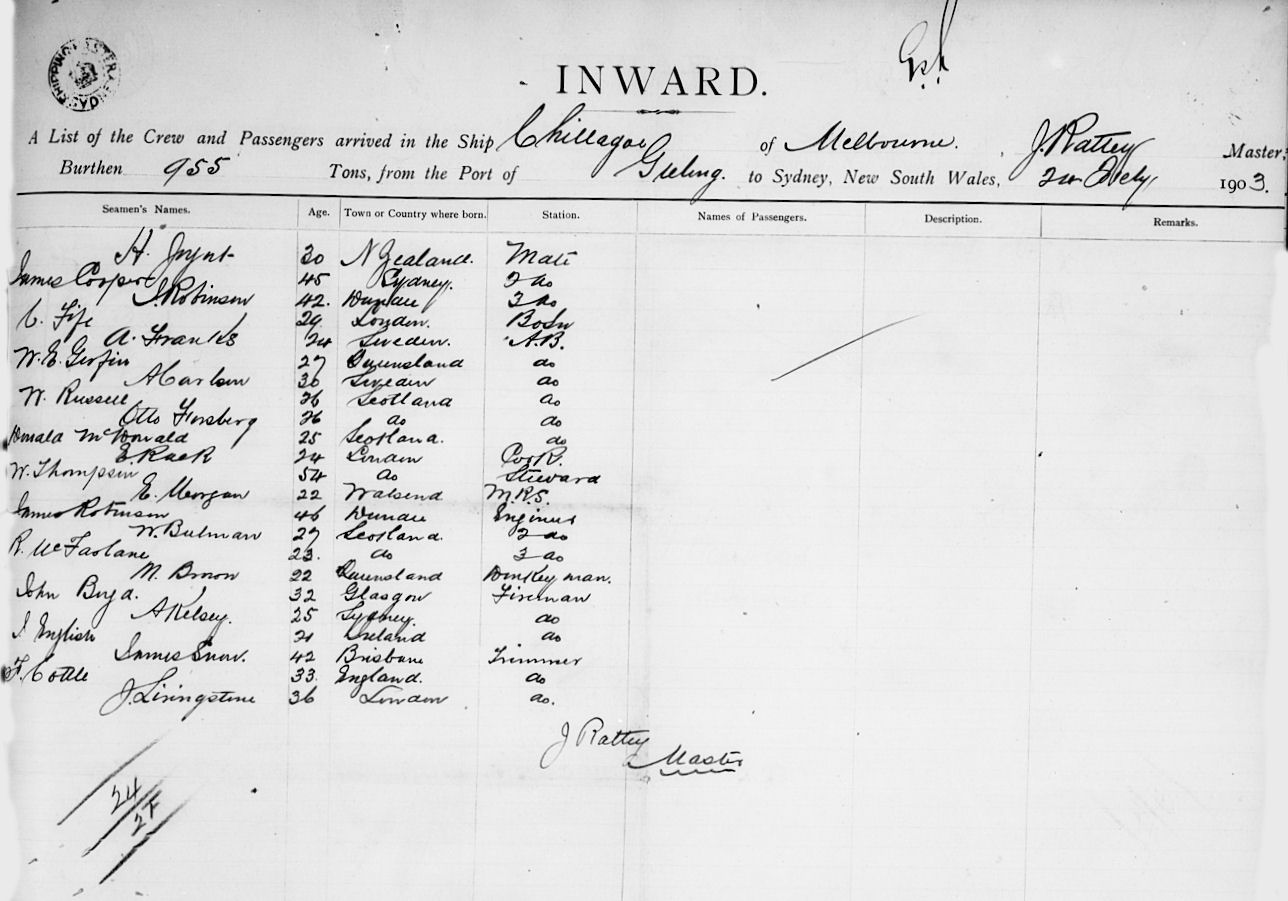 SHIPPING MASTER
INWARD.
A List of the Crew and Passengers arrived in the Ship Chillagoe of Melbourne. J. Rattey Master,
Burthen 955 Tons, from the Port of Geelong. to Sydney, New South Wales, 1903.
Seamen's Names. Age. Town or Country where born. Station. Names of Passengers. Description. Remarks.
H. Joynt 30 N Zealand. Mate
James Cooper 45 Sydney. 2 do
J. Robinson 42. Dundee 3 do
C. Fife 29 London. Bosn
A. Franks 24 Sweden. A.B.
W. E. 27 Queensland do
A Carlson 30 Sweden do
W. Russell 26 Scotland do
Otto Forsberg 26 do do
Donald McDonald 25 Scotland. do
E Rack 24 London Cook.
W. Thompson 54 do Steward
E. Morgan 22 Walsend M.R.S.
James Robinson 46 Dundee Engineer
W. Bulman 27 Scotland. 2 do
R. McFarlane 23. do 3 do
M. Brown 22 Queensland Donkeyman.
John Boyd. 32 Glasgow Fireman
A Kelsey. 25 Sydney. do
J English 21 Ireland do
James Snow. 42 Brisbane Trimmer
F. Cottle 33. England. do
J. Livingstone 36 London do.
J Rattey
Master
24